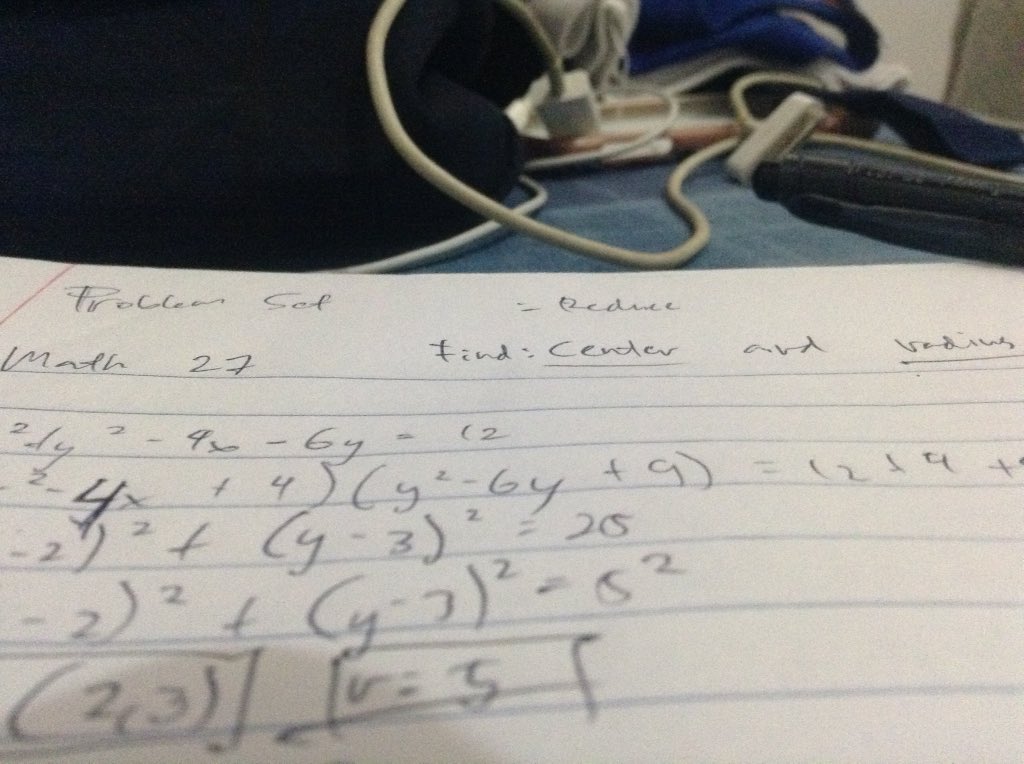 Problem Set = Reduce
Math 27 Find: Center and radius
²+y² - 4x - 6y = 12
²- 4x + 4) (y² - 6y + 9) = 12 + 4 + 9
- 2)² + (y - 3)² = 25
- 2)² + (y - 3)² = 5²
(2,3) r = 5